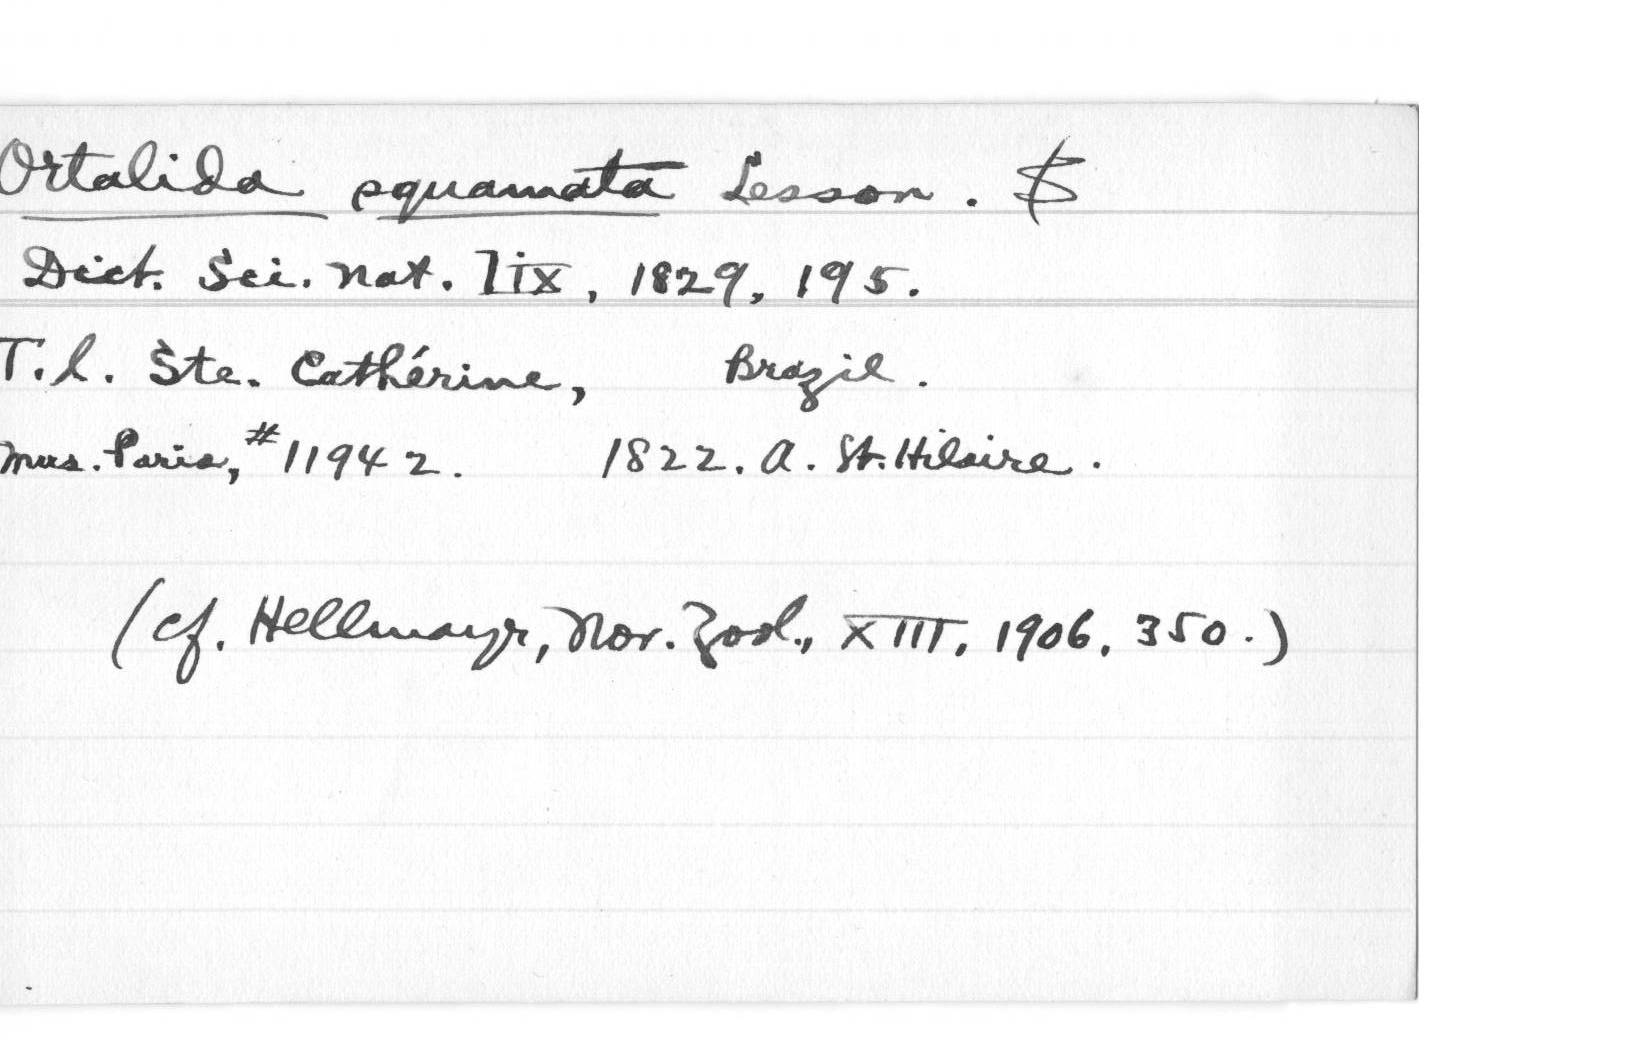 Ortalida squamata Lesson. $
Dict. Sci. Nat. lix, 1829, 195.
T.l. Ste. Cathérine, Brazil.
Mus. Paris, #11942. 1822. A. St. Hilaire.
(cf. Hellmayr, Nov. Zool., XIII, 1906, 350.)